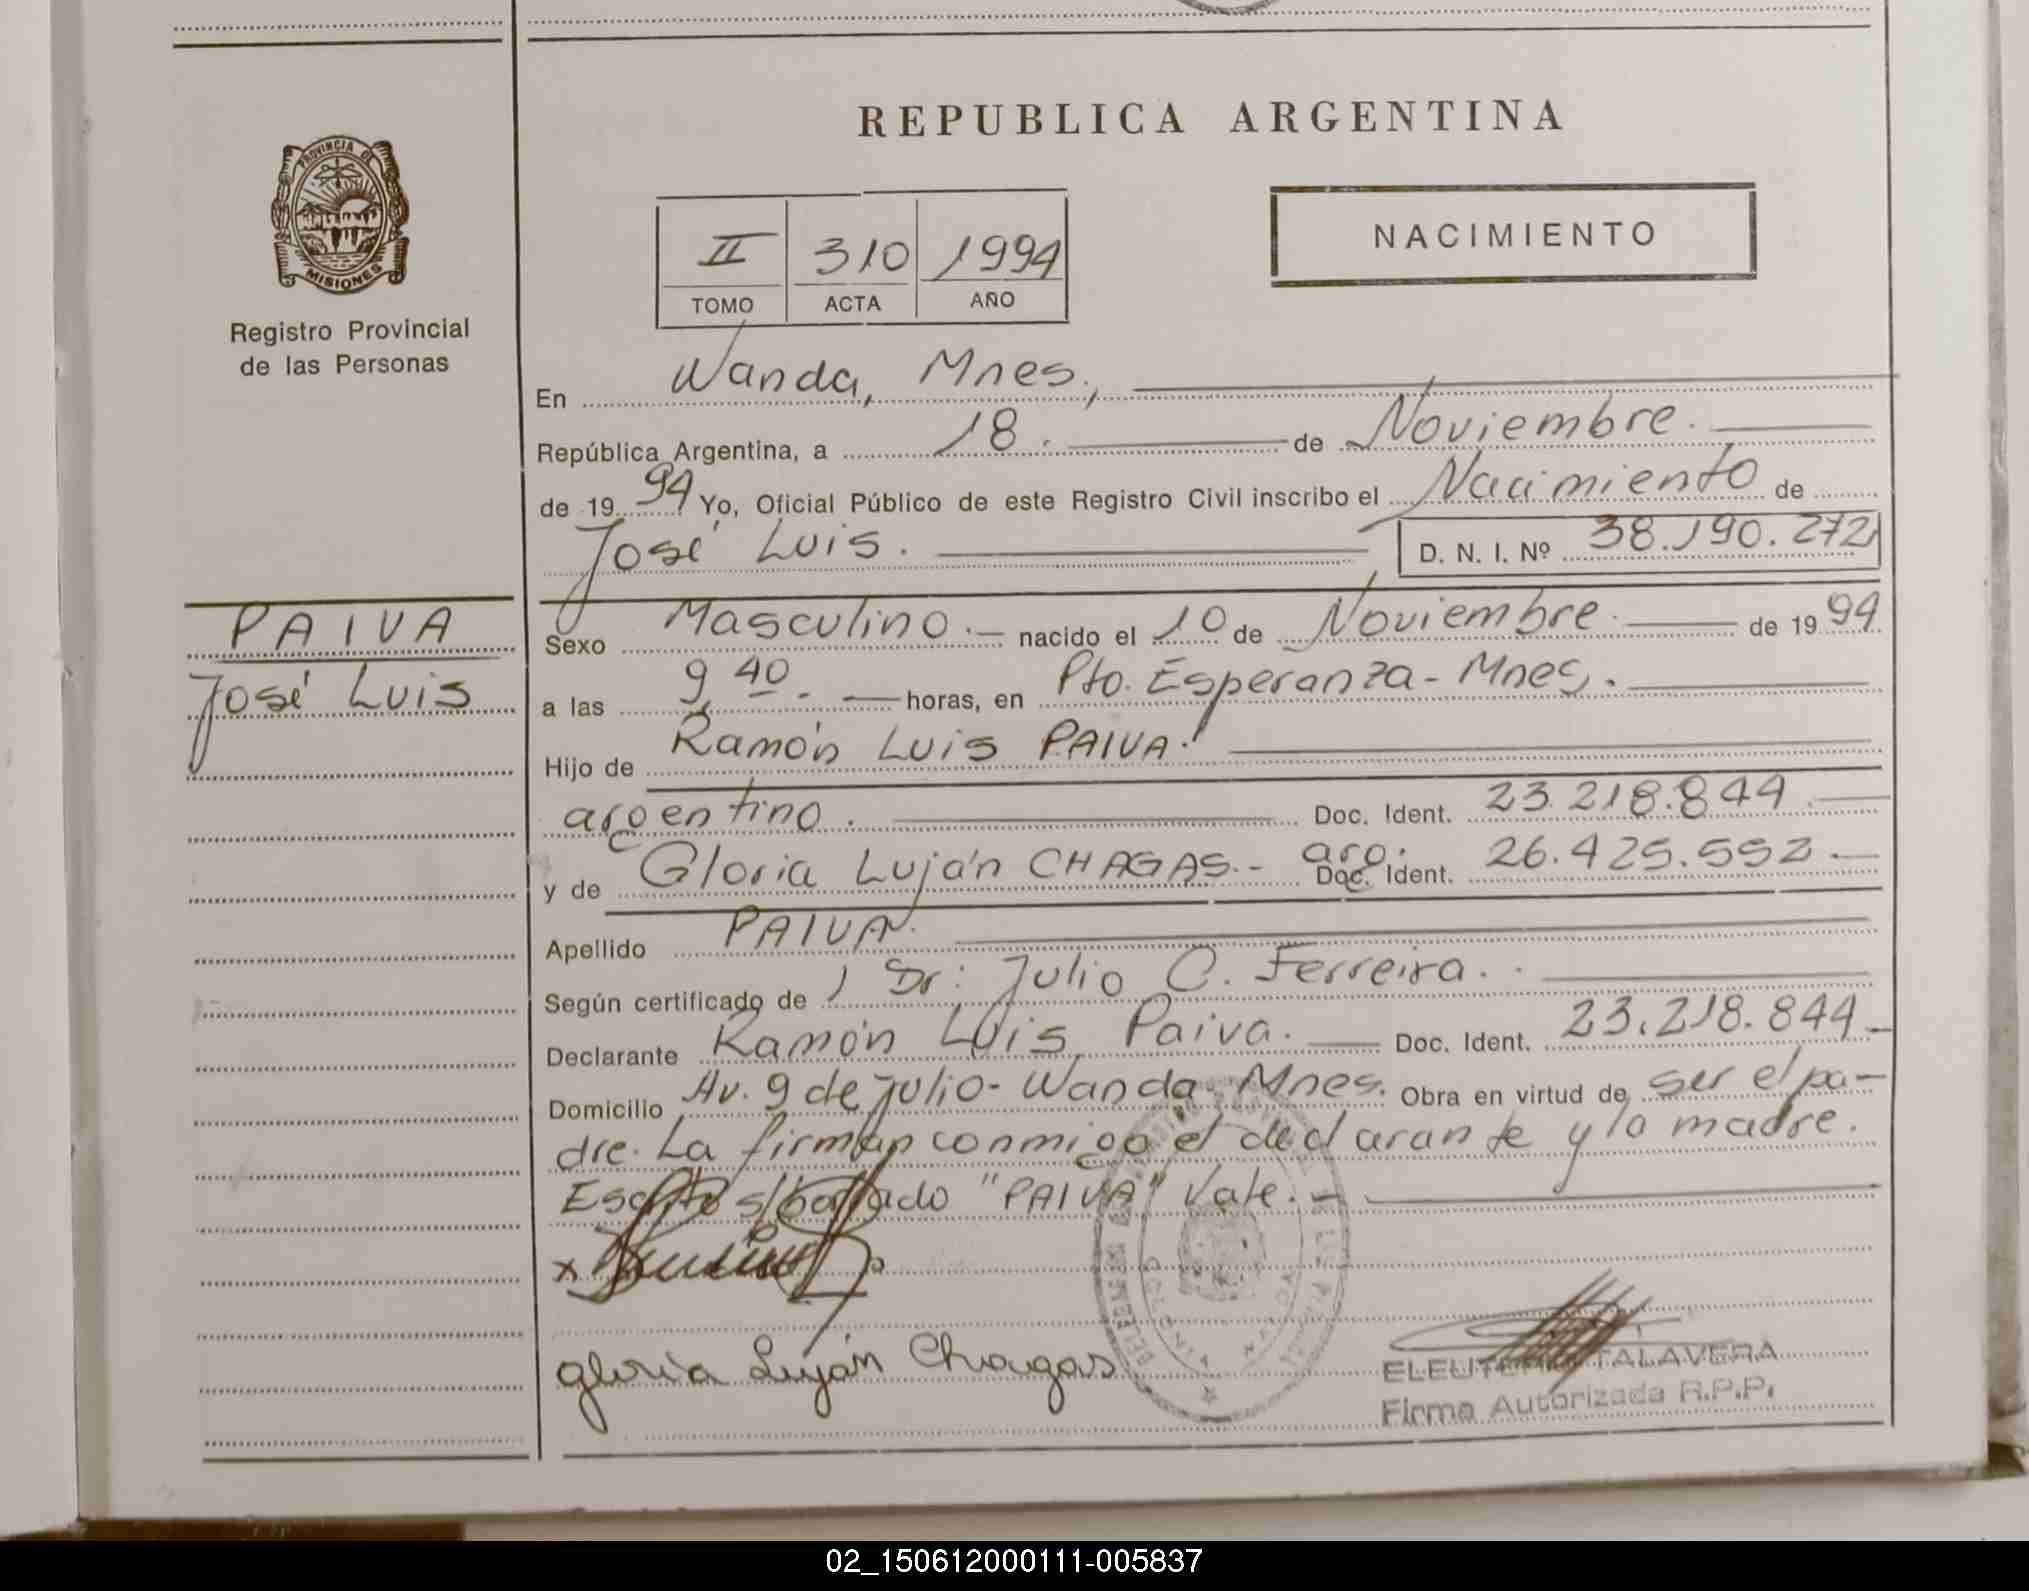 REPUBLICA ARGENTINA
PROVINCIA DE
MISIONES
Registro Provincial
de las Personas
II 310 1994
TOMO ACTA AÑO
NACIMIENTO
En Wanda, Mnes.,
República Argentina, a 18. de Noviembre.
de 19 94 Yo, Oficial Público de este Registro Civil inscribo el Nacimiento de
José Luis. D. N. I. Nº 38.190.272
PAIVA
José Luis
Sexo Masculino.- nacido el 10 de Noviembre. de 19 94
a las 9 40. horas, en Pto. Esperanza - Mnes.
Hijo de Ramón Luis PAIVA.
argentino. Doc. Ident. 23.218.844.
y de Gloria Luján CHAGAS.- arg. Doc. Ident. 26.425.552.
Apellido PAIVA.
Según certificado de Dr: Julio C. Ferreira.
Declarante Ramón Luis Paiva. Doc. Ident. 23.218.844.
Domicilio Av. 9 de julio - Wanda - Mnes. Obra en virtud de ser el pa-
dre. La firman conmigo el declarante y la madre.
Escrito s/borrado "PAIVA" Vale.-
x
gloria Luján Chagas
ELEUTERIO TALAVERA
Firma Autorizada R.P.P.
02_150612000111-005837